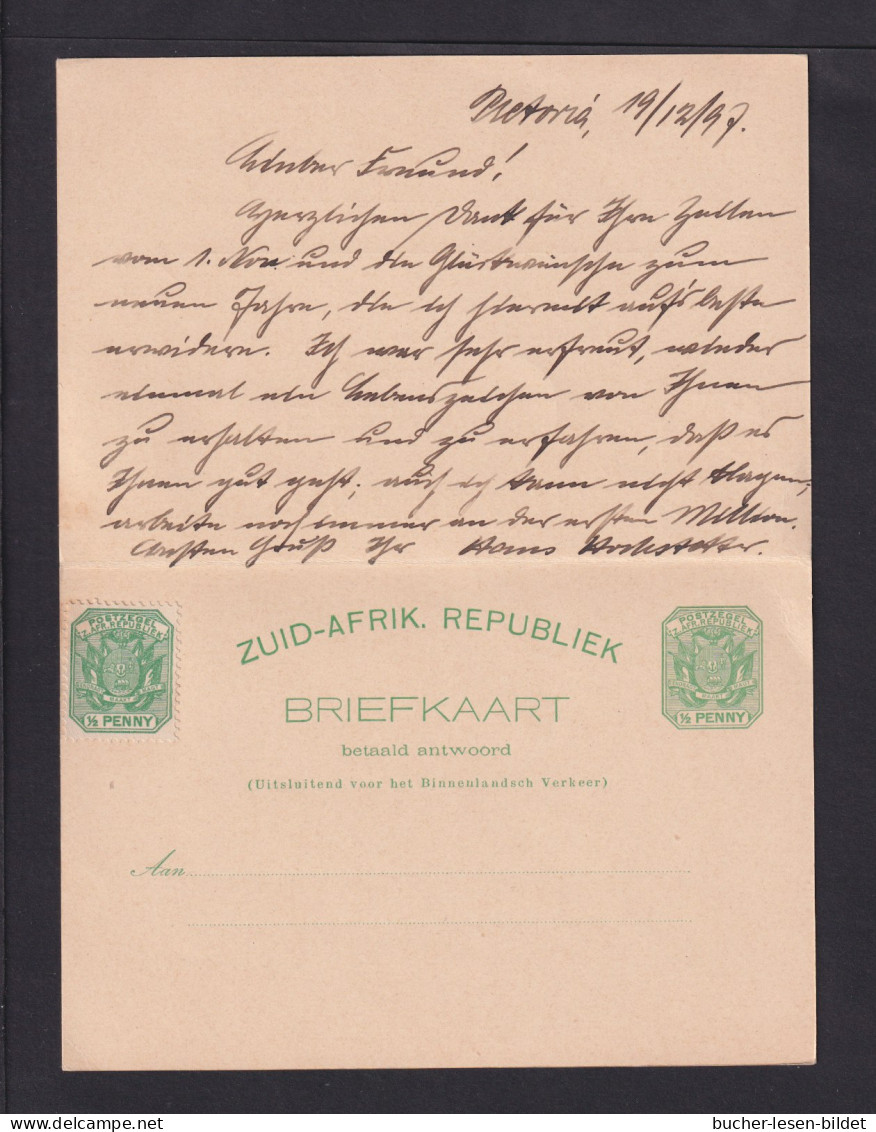 Pretoria, 19/12/97.
Lieber Freund!
Herzlichen Dank für Ihre Zeilen
vom 1. Nov und die Glückwünsche zum
neuen Jahre, die ich hiermit auf's beste
erwidere. Ich war sehr erfreut, wieder
einmal ein Lebenszeichen von Ihnen
zu erhalten und zu erfahren, daß es
Ihnen gut geht; auch ich kann nicht klagen,
arbeite noch immer an der ersten Million.
Besten Gruß Ihr Hans
POSTZEGEL
Z. AFR. REPUBLIEK
½ PENNY
ZUID-AFRIK. REPUBLIEK
POSTZEGEL
Z. AFR. REPUBLIEK
½ PENNY
BRIEFKAART
betaald antwoord
(Uitsluitend voor het Binnenlandsch Verkeer)
Aan
bucher-lesen-bildet